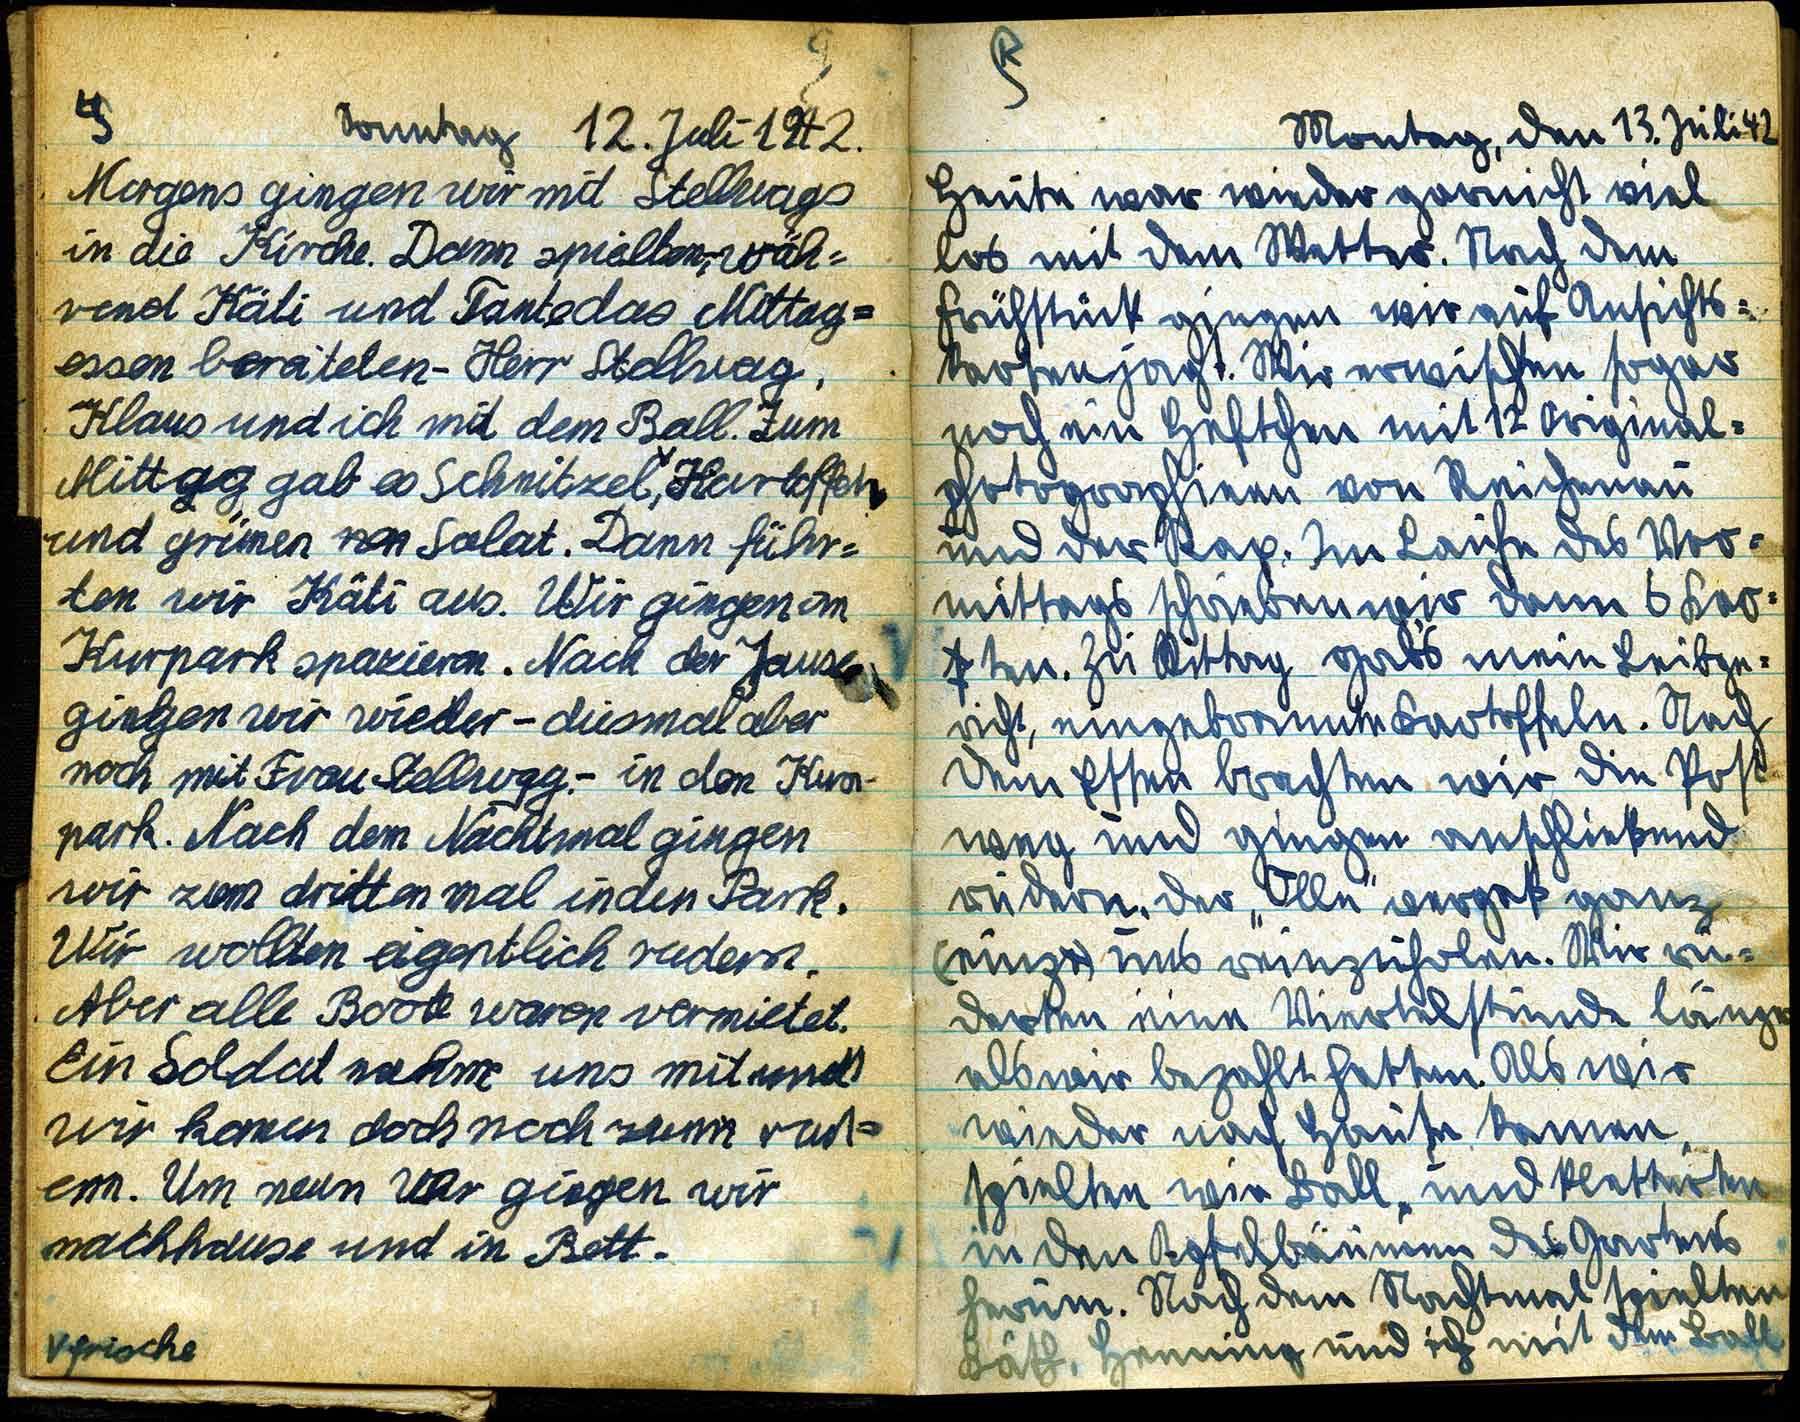 Sonntag 12. Juli 1942.
Morgens gingen wir mit Stellwags
in die Kirche. Dann spielten, wäh=
rend Käti und Tante das Mittag=
essen bereiteten - Herr Stellwag,
Klaus und ich mit dem Ball. Zum
Mittag gab es Schnitzel, Kartoffeln
und grünen Salat. Dann führ=
ten wir Käti aus. Wir gingen im
Kurpark spazieren. Nach der Jause
gingen wir wieder - diesmal aber
noch mit Frau Stellwag. - in den Kur-
park. Nach dem Nachtmal gingen
wir zum dritten mal in den Park.
Wir wollten eigentlich rudern.
Aber alle Boote waren vermietet.
Ein Soldat nahm uns mit und
wir kamen doch noch zum rud=
ern. Um neun Uar gingen wir
nachhause und in Bett.
v frische
Montag, den 13. Juli 42
Heute war wieder garnicht viel
los mit dem Wetter. Nach dem
Frühstück gingen wir auf Ansichts=
kartenjagt. Wir erwischten sogar
noch ein Heftchen mit 12 Original=
photographieen von Reichenau
und der Rax. Im Laufe des Vor=
mittags schrieben wir dann 6 Kar=
ten. Zu Mittag gab's mein Leibge=
richt, eingebrannte Kartoffeln. Nach
dem Essen brachten wir die Post
weg und gingen anschließend
rudern. der „Olle" vergaß ganz
uns reinzuholen. Wir ru=
derten eine Viertelstunde länger
als wir bezahlt hatten. Als wir
wieder nach Hause kamen,
spielten wir Ball, und kletterten
in den Apfelbäumen des Gartens
herum. Nach dem Nachtmal spielten
Käth, Henning und ich mit dem Ball